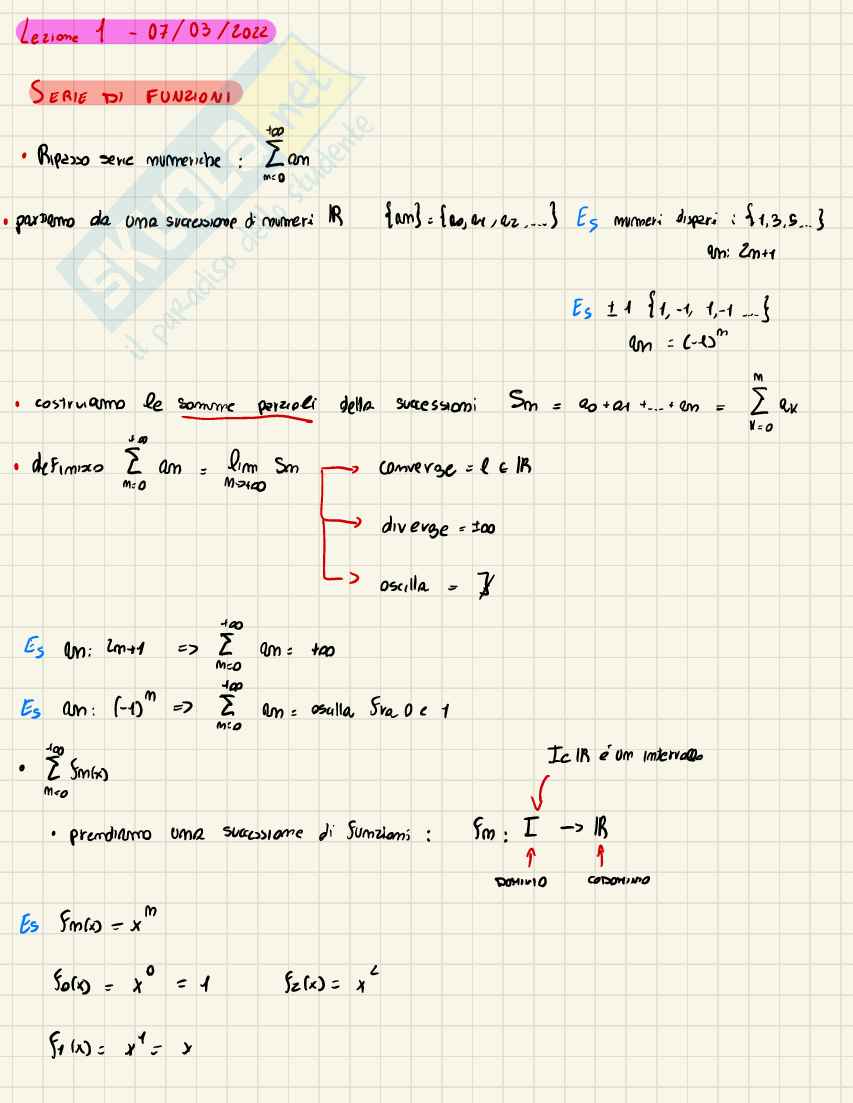 Lezione 1 - 07/03/2022
SERIE DI FUNZIONI
• Ripasso serie numeriche : $\sum_{n=0}^{+\infty} a_n$
• partiamo da una successione di numeri ℝ {an} = {a0, a1, a2, ....} Es numeri dispari : {1, 3, 5...}
an: 2n+1
Es ±1 {1, -1, 1, -1 ...}
an = (-1)^n
• costruiamo le somme parziali della successioni Sn = a0 + a1 + ... + an = $\sum_{k=0}^{n} a_k$
• definisco $\sum_{n=0}^{+\infty} a_n = \lim_{n\to+\infty} S_n$ → converge = l ∈ ℝ
→ diverge = ±∞
→ oscilla = ∄
Es an: 2n+1 => $\sum_{n=0}^{+\infty} a_n$ = +∞
Es an: (-1)^n => $\sum_{n=0}^{+\infty} a_n$ = oscilla fra 0 e 1
• $\sum_{n=0}^{+\infty} f_n(x)$
I ⊂ ℝ é un intervallo
• prendiamo una successione di funzioni : fn : I -> ℝ
DOMINIO CODOMINIO
Es fn(x) = x^n
f0(x) = x^0 = 1 f2(x) = x^2
f1(x) = x^1 = x
SKUOLA.net
il paradiso dello studente